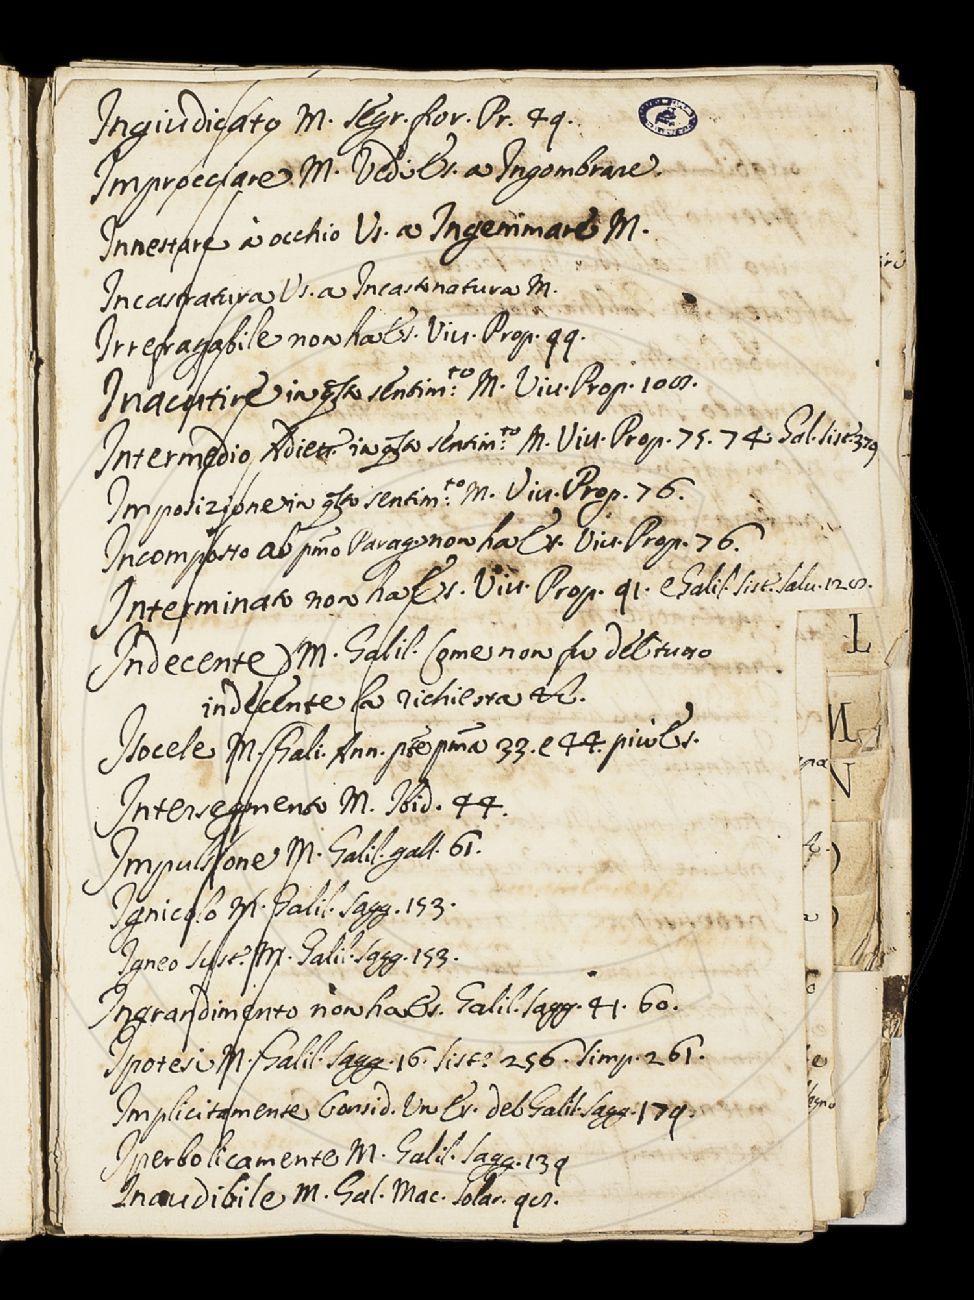 Ingiudicato M. Segr. fior. Pr. 49.
Improcciare M. Vedi Es. a Ingombrare.
Innestare à occhio Vs. a Ingemmare M.
Incastratura Vs. a Incastonatura M.
Irrefragabile non ha Es. Viu. Prop. 99.
Inacutire in qsto sentim.to M. Viu. Prop. 108.
Intermedio Adiett. in qsto sentim.to M. Viu. Prop. 75. 74. Gal. Sist. 379
Imposizione in qsto sentim.to M. Viu. Prop. 76.
Incomposto al pmo Parag. non ha Es. Viu. Prop. 76.
Interminato non ha Es. Viu. Prop. 91. e Galil. Sist. Salu. 128.
Indecente M. Galil. Come non fu del tutto
indecente la richiesta &c.
Isocele M. Gali. Ann. pte pma 33. e 44. più Es.
Intersegmento M. Ibid. 44.
Impulsione M. Galil. gall. 61.
Ignicolo M. Galil. Sagg. 153.
Igneo Sust. M. Galil. Sagg. 153.
Ingrandimento non ha Es. Galil. Sagg. 41. 60.
Ipotesi M. Galil. Sagg. 16. Sist. 256. Simp. 261.
Implicitamente Consid. Un Es. del Galil. Sagg. 179.
Iperbolicamente M. Galil. Sagg. 139
Inaudibile M. Gal. Mac. Solar. 98.
L